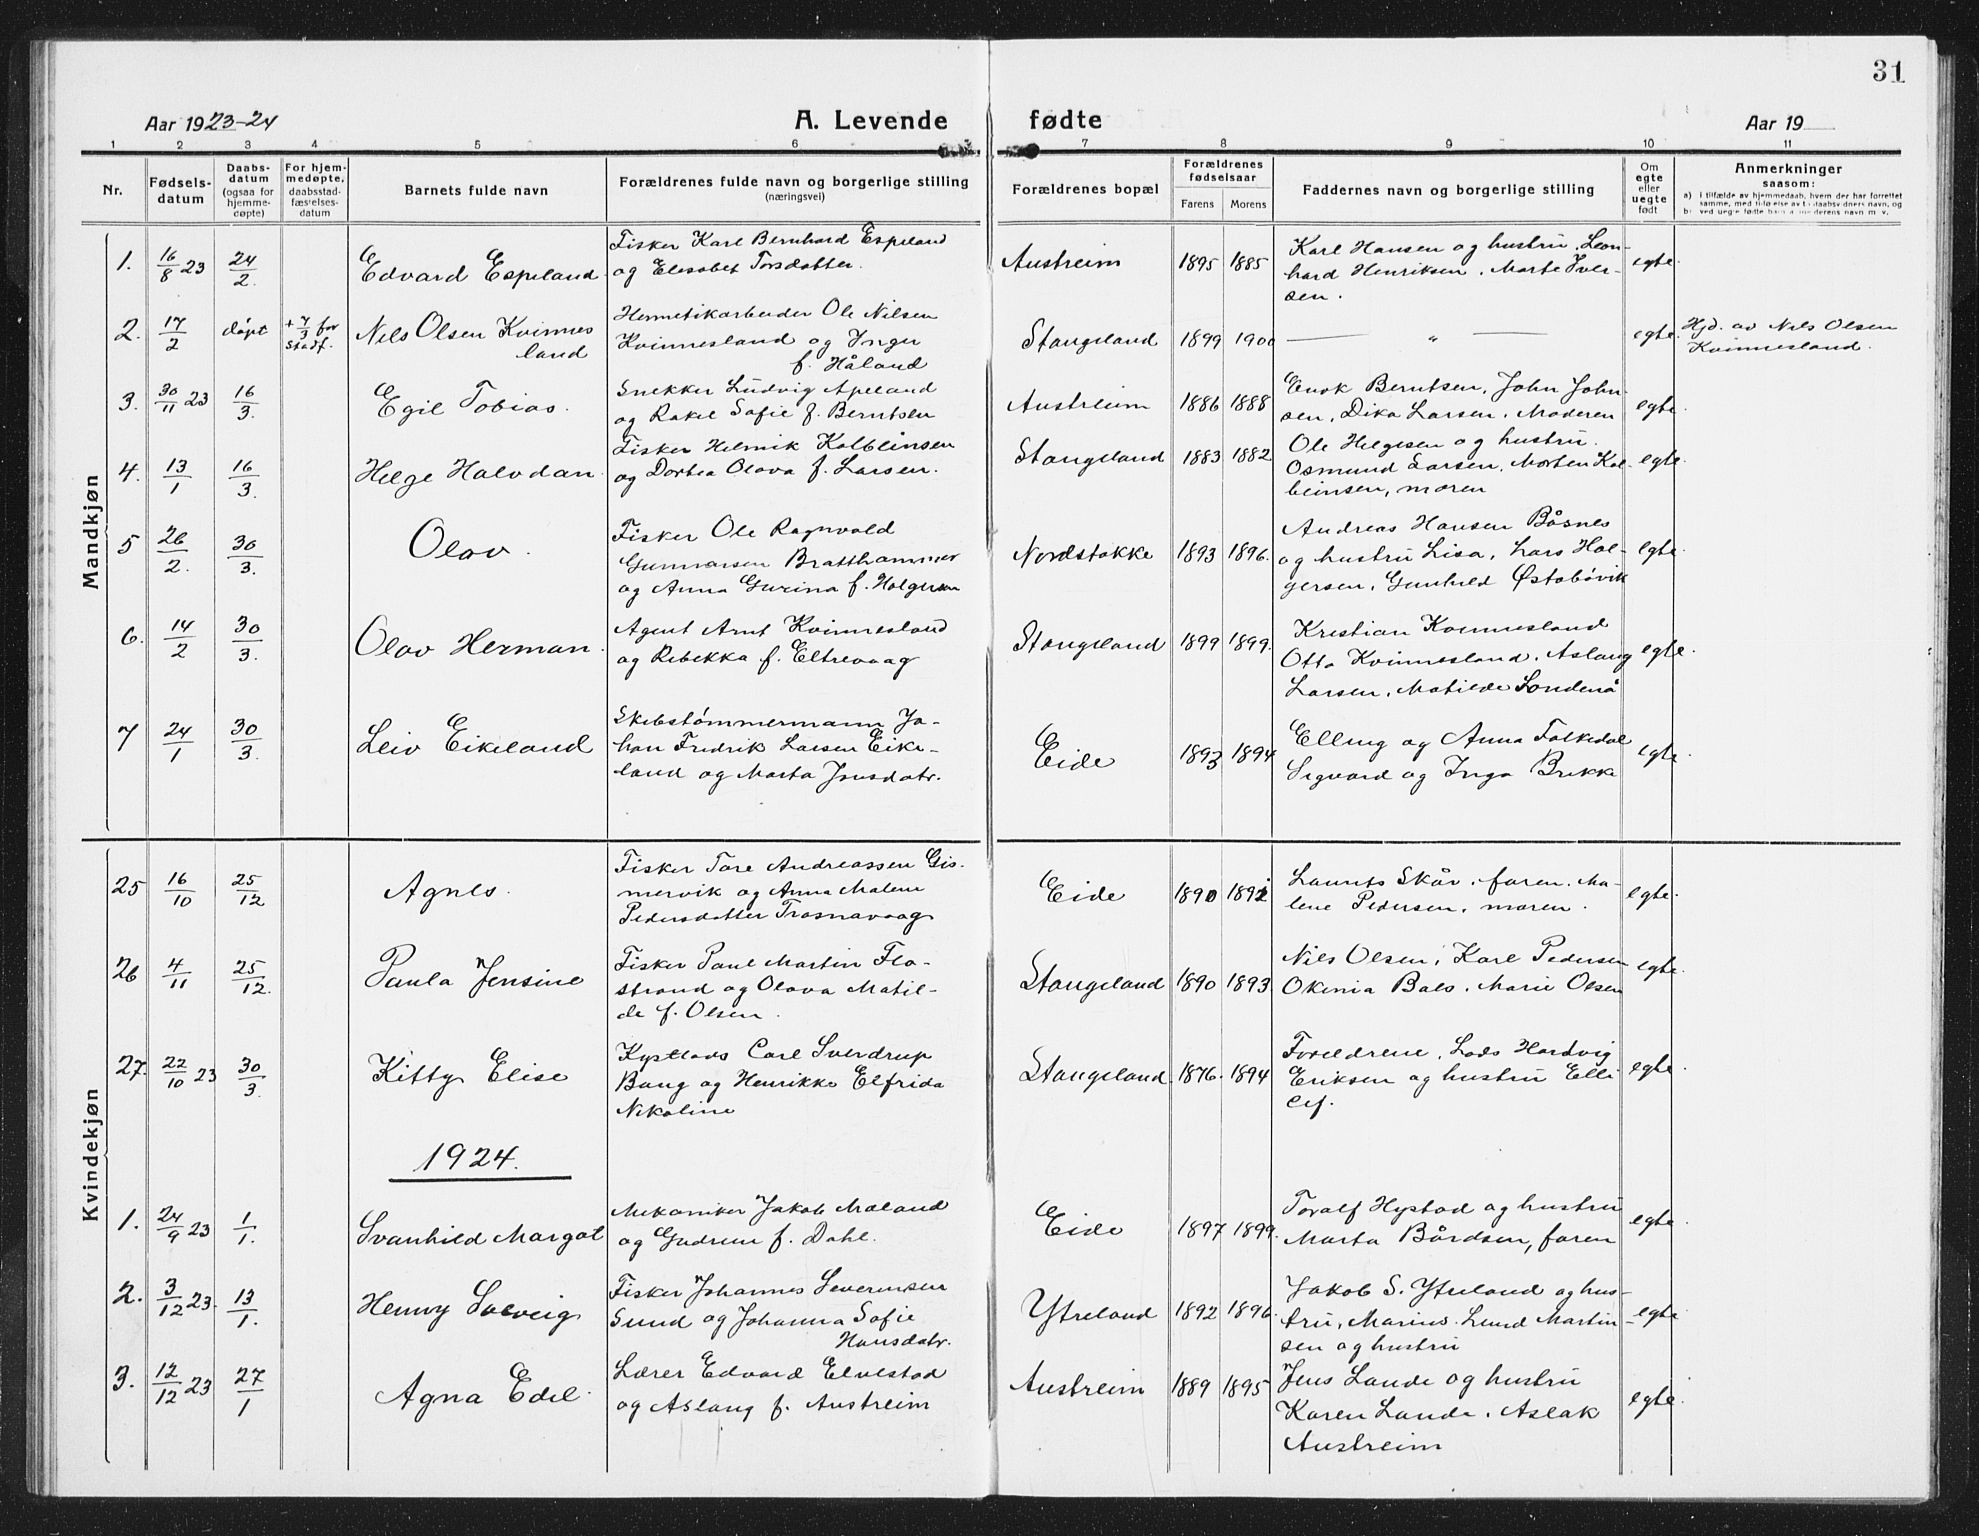 31
Aar 1923-24
A. Levende fødte
Aar 19
1 2 3 4 5 6 7 8 9 10 11
Nr.
Fødsels-
datum
Daabs-
datum
(ogsaa for
hjemme-
døpte)
For hjem-
medøpte,
daabsstad-
fæstelses-
datum
Barnets fulde navn
Forældrenes fulde navn og borgerlige stilling
(næringsvei)
Forældrenes bopæl
Forældrenes
fødselsaar
Farens Morens
Faddernes navn og borgerlige stilling
Om
egte
eller
uegte
født
Anmerkninger
saasom:
a) i tilfælde av hjemmedaab, hvem der har forrettet
samme, med tilføielse av
b) ved uegte fødte
Mandkjøn
1.
16/8 23
24/2.
Edvard Espeland
Fisker Karl Bernhard Espeland
og Elisabet Torsdatter.
Austreim
1895 1885
Karl Hansen og hustru, Leon-
hard Henriksen, Marte Iver-
sen.
egte.
2.
17/2
døpt
+ 7/3 før
stadf.
Nils Olsen Kvinnes
land
Hermetikarbeider Ole Nilsen
Kvinnesland og Inger
f. Håland
Stangeland
1899 1900
— " —
egte.
Hjd. av Nils Olsen
Kvinnesland.
3.
30/11 23
16/3.
Egil Tobias.
Snekker Ludvig Apeland
og Rakel Sofie f. Berntsen
Austreim
1886 1888
Enok Berntsen, John John-
sen, Dika Larsen, Moderen
egte.
4.
13/1
16/3.
Helge Halvdan.
Fisker Helmik Kolbeinsen
og Dortea Olava f. Larsen.
Stangeland
1883 1882
Ole Helgesen og hustru.
Osmund Larsen, Morten Kol-
beinsen, moren
egte.
5
26/2.
30/3.
Olav.
Fisker Ole Ragnvald
Gunnarsen Bratthammer
og Anna Gurina f. Holgersen
Nordstokke
1893 1896.
Andreas Hansen Båsnes
og hustru Lisa, Lars Hol-
gersen, Gunhild Østabøvik
egte.
6.
14/2
30/3.
Olav Herman.
Agent Arnt Kvinnesland
og Rebekka f. Eltrevaag
Stangeland
1899 1899.
Kristian Kvinnesland
Otto Kvinnesland, Aslaug
Larsen, Matilde Sondenå
egte.
7
24/1
30/3.
Leiv Eikeland
Skibstømmermann Jo-
han Fredrik Larsen Eike-
land og Marta Jonsdatr.
Eide
1893 1894
Elling og Anna Falkedal
Sigvard og Inga Brekke
egte.
Kvindekjøn
25
16/10
25/12
Agnes.
Fisker Tore Andreassen Gis-
mervik og Anna Malene
Pedersdatter Trosnavaag
Eide
1890 1892
Laurits Skår, faren, Ma-
lene Pedersen, moren.
egte.
26
4/11
25/12.
Paula Jensine
Fisker Paul Martin Flo-
strand og Olava Matil-
de f. Olsen.
Stangeland
1890 1893
Nils Olsen, Karl Pedersen
Okinia Bals, Marie Olsen
egte.
27.
22/10 23
30/3.
Kitty Elise
Kystlods Carl Sverdrup
Bang og Henrikke Elfrida
Nikoline
Stangeland.
1876. 1894
Foreldrene, Lods Hardvig
Eriksen og hustru Elli
Cef.
egte.
1924.
1.
24/9 23
1/1.
Svanhild Margot
Mekaniker Jakob Mæland
og Gudrun f. Dahl.
Eide
1897 1899.
Toralf Hystad og hustru
Marta Bårdsen, faren
egte.
2.
3/12 23.
13/1.
Henny Solveig
Fisker Johannes Severinsen
Sund og Johanna Sofie
Hansdatr.
Ytreland
1892 1896.
Jakob S. Ytreland og hus-
tru, Marius Lund Martin-
sen og hustru
egte
3.
12/12 23
27/1
Agna Edel.
Lærer Edvard Elvestad
og Aslaug f. Austreim
Austreim
1889 1895
Jens Lande og hustru
Karen Lande, Aslak
Austreim
egte.